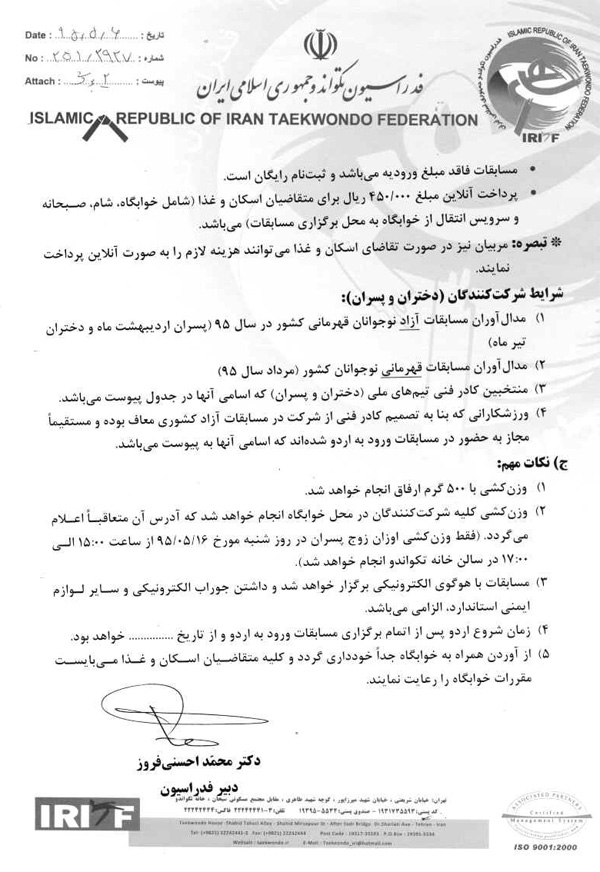 Date : ۹۵/۵/۶ تاریخ :
No : ۲۵۱/۲۹۲۷ شماره :
Attach : ۲ برگ پیوست :
فدراسیون تکواندو جمهوری اسلامی ایران
ISLAMIC REPUBLIC OF IRAN TAEKWONDO FEDERATION
ISLAMIC REPUBLIC OF IRAN TAEKWONDO FEDERATION
فدراسیون تکواندو جمهوری اسلامی ایران
IRITF
• مسابقات فاقد مبلغ ورودیه می‌باشد و ثبت‌نام رایگان است.
• پرداخت آنلاین مبلغ ۴۵۰/۰۰۰ ریال برای متقاضیان اسکان و غذا (شامل خوابگاه، شام، صبحانه
و سرویس انتقال از خوابگاه به محل برگزاری مسابقات) می‌باشد.
❊ تبصره: مربیان نیز در صورت تقاضای اسکان و غذا می‌توانند هزینه لازم را به صورت آنلاین پرداخت
نمایند.
شرایط شرکت‌کنندگان (دختران و پسران):
۱) مدال‌آوران مسابقات آزاد نوجوانان قهرمانی کشور در سال ۹۵ (پسران اردیبهشت ماه و دختران
تیر ماه)
۲) مدال‌آوران مسابقات قهرمانی نوجوانان کشور (مرداد سال ۹۵)
۳) منتخبین کادر فنی تیم‌های ملی (دختران و پسران) که اسامی آنها در جدول پیوست می‌باشد.
۴) ورزشکارانی که بنا به تصمیم کادر فنی از شرکت در مسابقات آزاد کشوری معاف بوده و مستقیماً
مجاز به حضور در مسابقات ورود به اردو شده‌اند که اسامی آنها به پیوست می‌باشد.
ج) نکات مهم:
۱) وزن‌کشی با ۵۰۰ گرم ارفاق انجام خواهد شد.
۲) وزن‌کشی کلیه شرکت‌کنندگان در محل خوابگاه انجام خواهد شد که آدرس آن متعاقباً اعلام
می‌گردد. (فقط وزن‌کشی اوزان زوج پسران در روز شنبه مورخ ۹۵/۰۵/۱۶ از ساعت ۱۵:۰۰ الی
۱۷:۰۰ در سالن خانه تکواندو انجام خواهد شد).
۳) مسابقات با هوگوی الکترونیکی برگزار خواهد شد و داشتن جوراب الکترونیکی و سایر لوازم
ایمنی استاندارد، الزامی می‌باشد.
۴) زمان شروع اردو پس از اتمام برگزاری مسابقات ورود به اردو و از تاریخ .............. خواهد بود.
۵) از آوردن همراه به خوابگاه جداً خودداری گردد و کلیه متقاضیان اسکان و غذا می‌بایست
مقررات خوابگاه را رعایت نمایند.
دکتر محمّد احسنی‌فروز
دبیر فدراسیون
تهران: خیابان شریعتی ، خیابان شهید میرزاپور ، کوچه شهید طاهری ، مقابل مجتمع مسکونی سبحان ، خانه تکواندو
کد پستی: ۱۹۳۱۷۳۵۵۹۳ - صندوق پستی: ۵۵۳۴-۱۹۳۹۵ تلفن: ۳-۲۲۲۴۲۴۴۱ فاکس: ۲۲۲۴۲۴۴۴
IRITF
Website : taekwondo.ir E-Mail : Taekwondo_iri@hotmail.com
ASSOCIATED PARTNERS
Certified
Management System
ISO 9001:2000